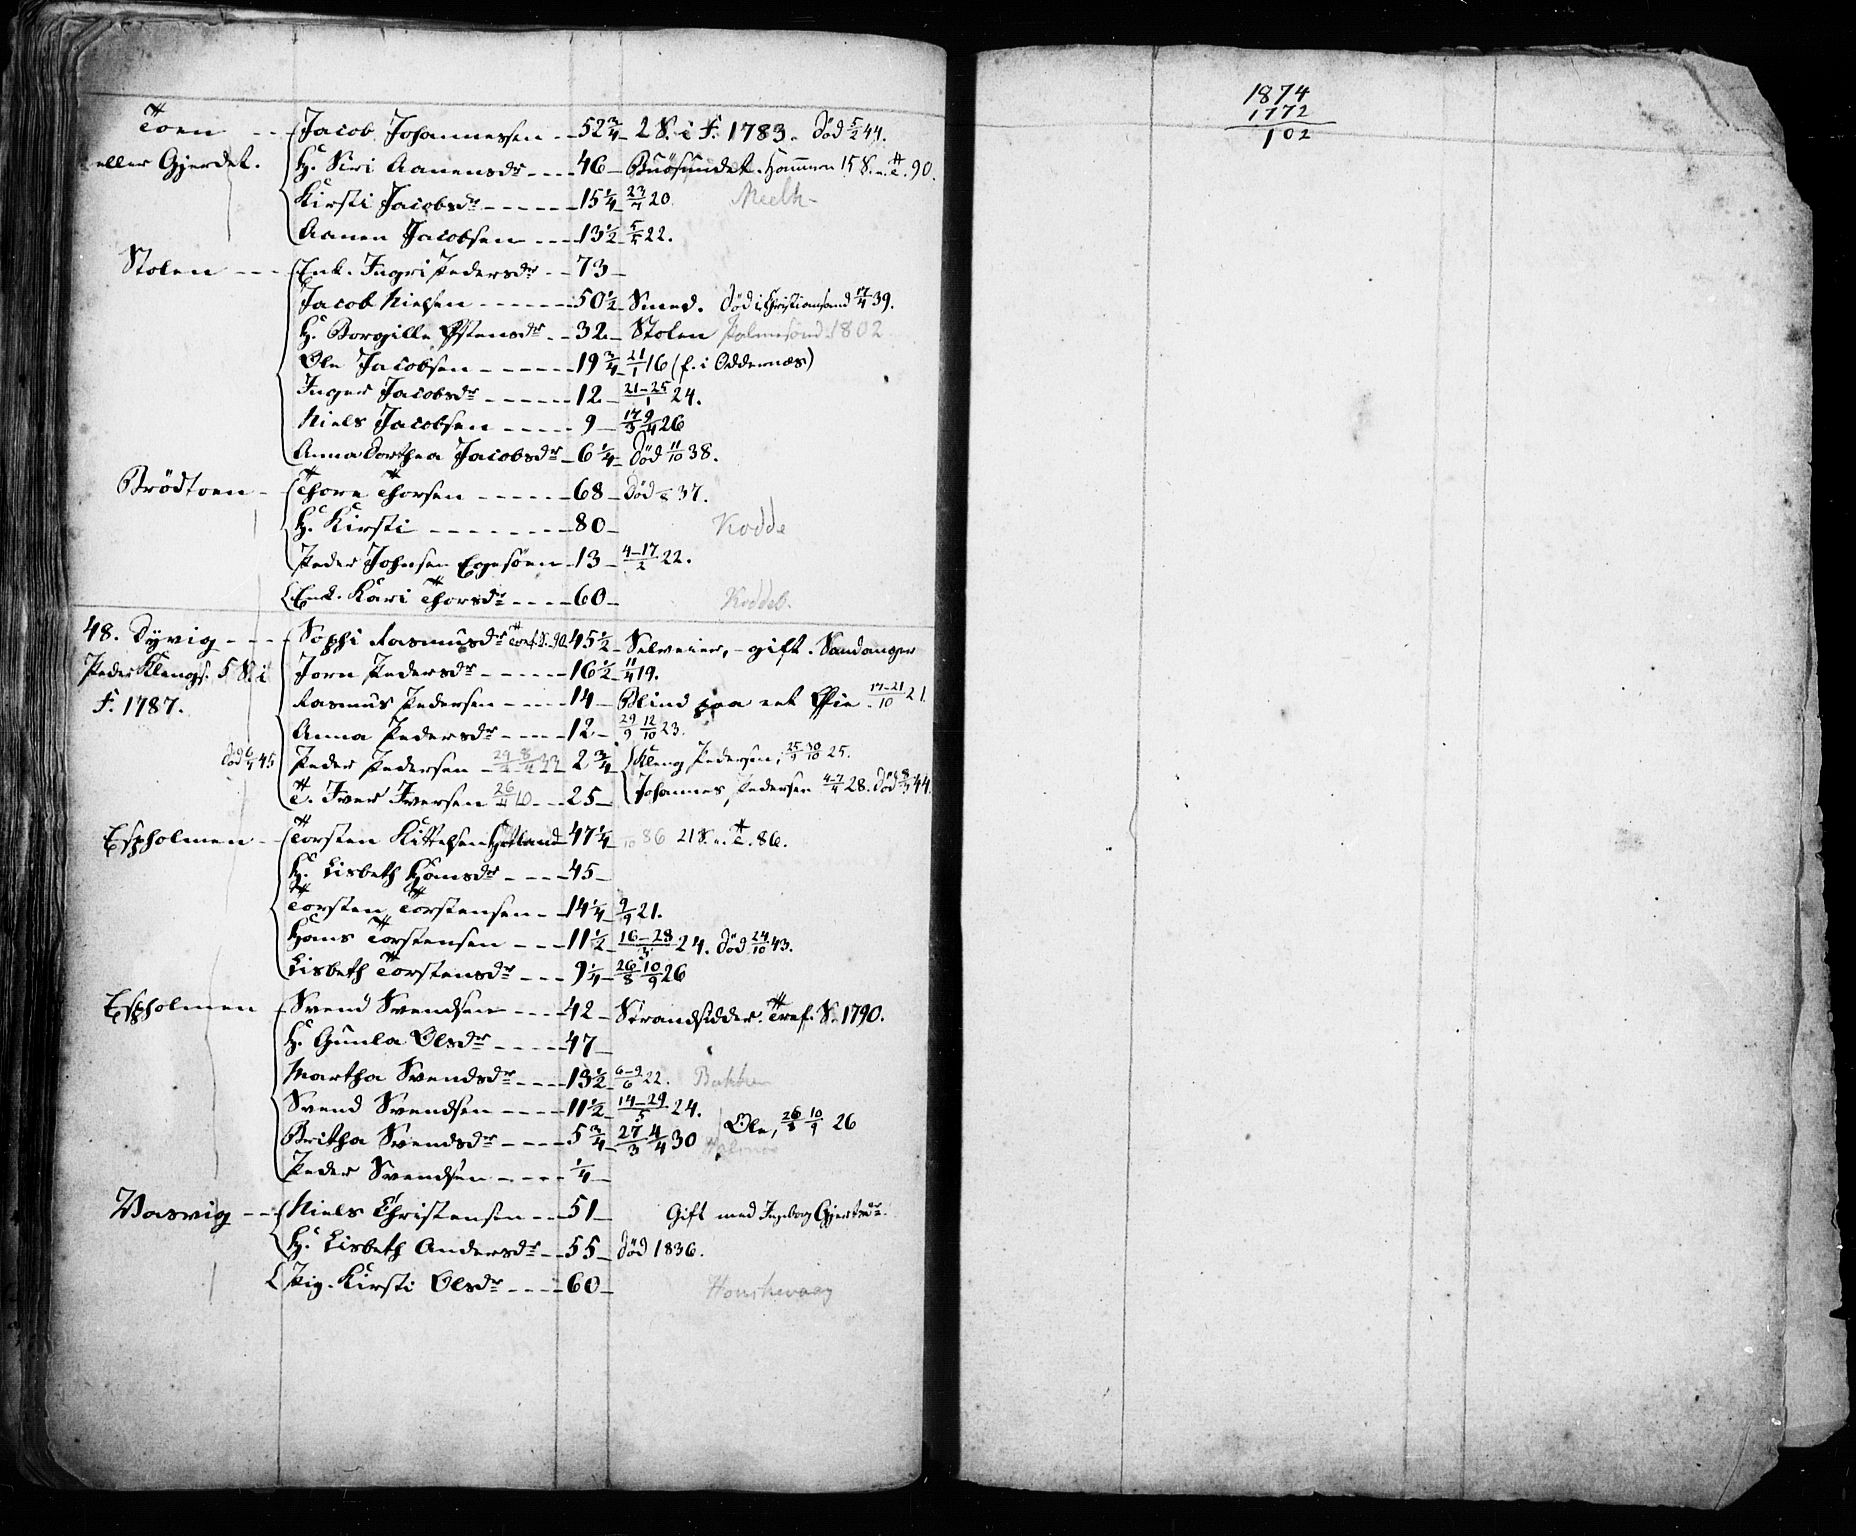 Toen - - Jacob Johannessen - - 52 3/4 - 2 S. i F. 1783. Død 5/2 44.
eller Gjerdet. H. Siri Aanensdr - - - - 46 - Buøsundet. Hommen 15 S. n. T. 90.
Kirsti Jacobsdr - - - - - - 15 1/4 23/4 20
Aanen Jacobsen - - - 13 1/2 22.
Stolen - - - Enk. Ingri Pedersdr - - 73 -
Jacob Nielsen - - - - - - 50 1/2 Smed. Død i Christiansand 17/4 39.
H. Borgille Østensdr - - 32 - Stolen 1802
Ole Jacobsen - - - - - - 19 3/4 21/1 16 (f. i Oddernæs)
Inger Jacobsdr - - - - - - 12 - 21-25/1 24.
Niels Jacobsen - - - - - 9 - 17/3 9/4 26
Anna Dorthea Jacobsdr - 6 1/4 - Død 11/10 38.
Brødtoen - Thore Thorsen - - - - - 68 - Død 37.
H. Kirsti - - - - - - - - 80 - Kodde
Peder Johnsen Egesøen - 13 - 4-17/2 22.
Enk. Kari Thorsdr - - - - 60 - Koddeb.
48. Dyvig - - - Sophi Rasmusdr Tref. S. 90. 45 1/2 - Selveier, - gift. Sandanger
Peder Klengs. 5 S. i Jorn Pedersdr - - - - - - 16 1/2 11/4 19.
F. 1787. Rasmus Pedersen - - - - 14 - Blind paa eet Øie - 17-21/10 21.
Anna Pedersdr - - - - - 12 - 29/9 12/10 23.
Død 45 Peder Pedersen - 33 - 2 3/4 - Kleng Pedersen, 25/9 30/10 25.
T. Iver Iversen 10 - - - 25 - Johannes Pedersen 4-7/4 28. Død 8/3 44.
Espholmen - - Torsten Kittelsen Hetland 47 1/4 - 86 21 S. n. T. 86.
H. Lisbeth Hansdr - - - - 45 -
Torsten Torstensen - - 14 1/4 - 9/9 21.
Hans Torstensen - - - - 11 1/2 - 16-28/3 24. Død 24/10 43.
Lisbeth Torstensdr - - - 9 1/4 - 26/8 10/9 26
Espholmen Svend Svendsen - - - - 42 - Strandsidder. Tref. S. 1790.
H. Gunla Olsdr - - - - - 47 -
Martha Svendsdr - - - - 13 1/2 - 6-9/6 22. Bakken
Svend Svendsen - - - - - 11 1/2 - 14-29/5 24.
Ole, 26/8 10/9 26
Britha Svendsdr - - - - - 5 3/4 - 27/3 4/4 30
Peder Svendsen - - - - - 1/4 -
Vasvig - - Niels Christensen - - - 51 - Gift med Ingeborg Gjertsdr.
H. Lisbeth Andersdr - - 55 - død 1836.
Pig. Kirsti Olsdr - - - - 60 -
1874
1772
102